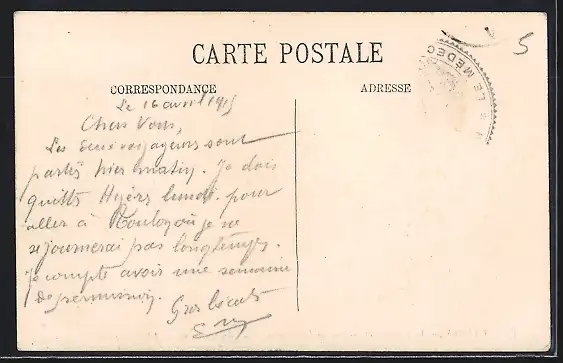 CARTE POSTALE
5
LE MÉDEC
CORRESPONDANCE
ADRESSE
Le 16 avril 1915
Chers Vous,
Les deux voyageurs sont
partis hier matin. Je dois
quitter Hyères lundi pour
aller à Toulon où je ne
séjournerai pas longtemps.
Je compte avoir une semaine
de permission.
Gros bécots